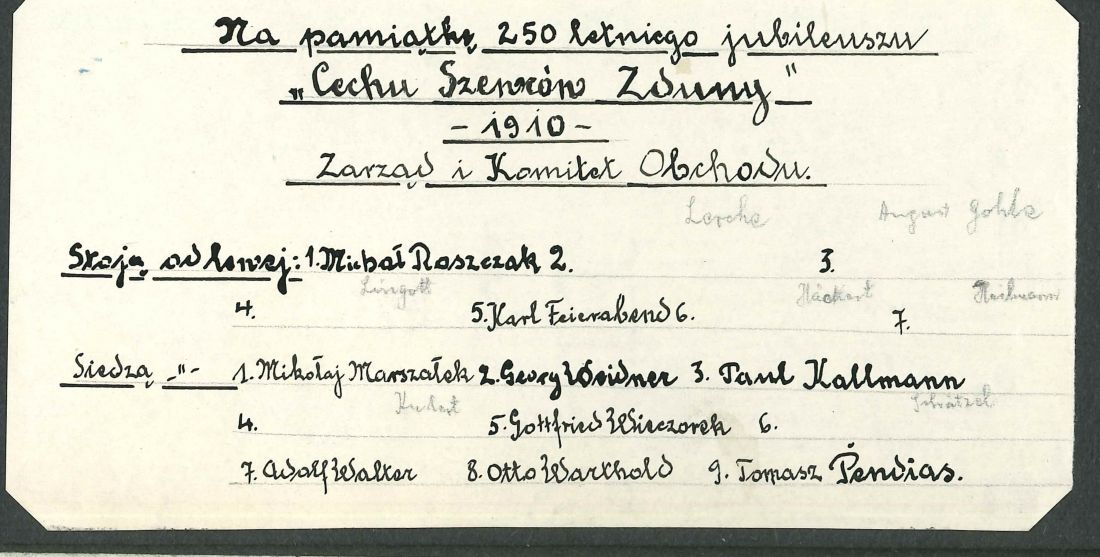 Na pamiątkę 250 letniego jubileuszu
„Cechu Szewców Zduny"
- 1910 -
Zarząd i Komitet Obchodu.
Lerche August Gohle
Stoją od lewej: 1. Michał Raszczak 2. 3.
Lingott Häckert Heilmann
4. 5. Karl Feierabend 6. 7.
Siedzą -"- 1. Mikołaj Marszałek 2. Georg Weidner 3. Paul Kallmann
Schätzel
4. 5. Gottfried Wieczorek 6.
7. Adolf Walter 8. Otto Warthold 9. Tomasz Pendias.